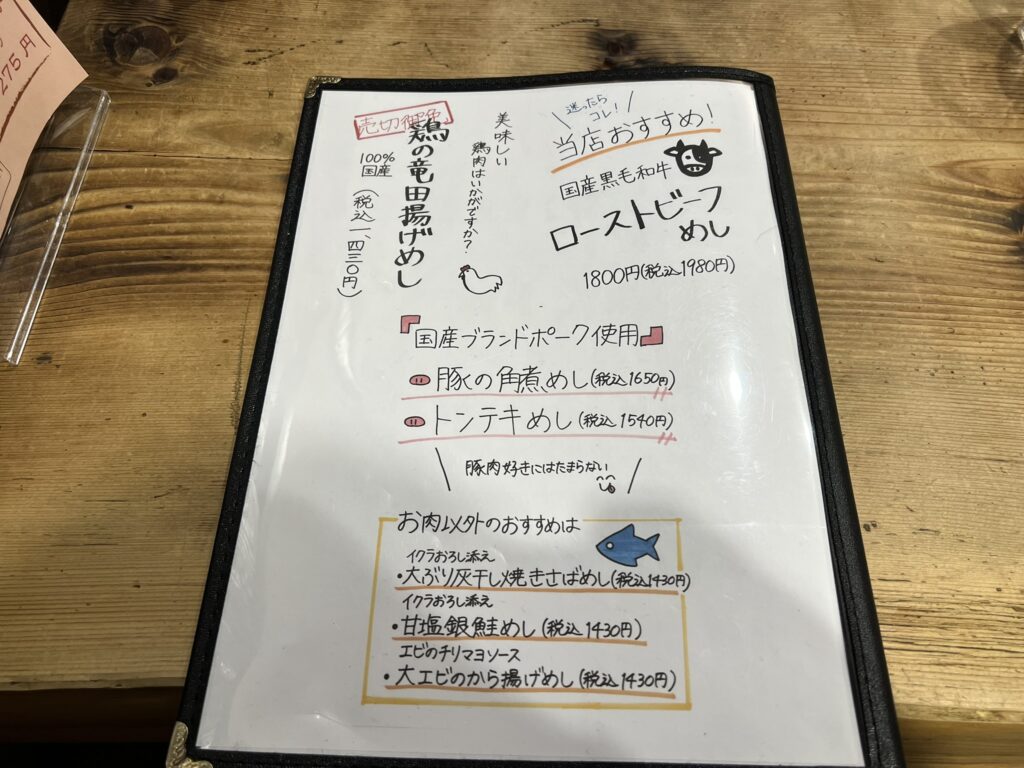 275円
迷ったら
コレ！
当店おすすめ！
国産黒毛和牛
ローストビーフ
めし
1800円(税込1980円)
美味しい
鶏肉はいかがですか？
売切御免
鶏の竜田揚げめし
100%
国産
(税込一、四三〇円)
『国産ブランドポーク使用』
豚の角煮めし(税込1650円)
トンテキめし(税込1540円)
豚肉好きにはたまらない
お肉以外のおすすめは
イクラおろし添え
・大ぶり灰干し焼きさばめし(税込1430円)
イクラおろし添え
・甘塩銀鮭めし(税込1430円)
エビのチリマヨソース
・大エビのから揚げめし(税込1430円)